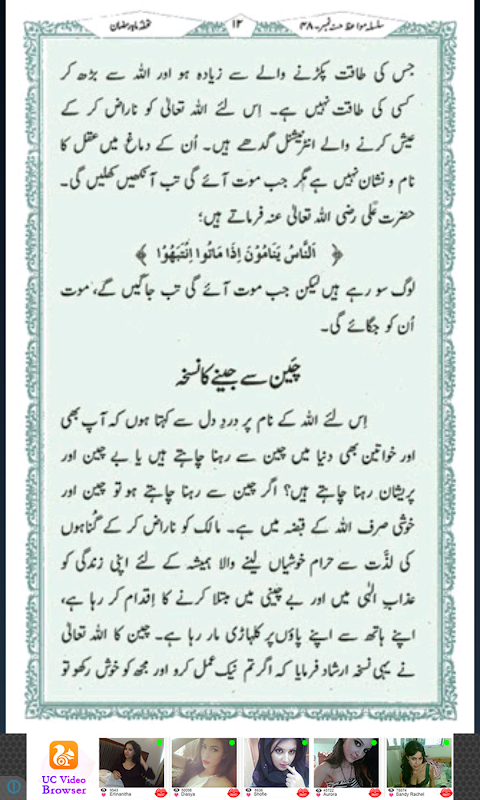 سلسلہ مواعظ حسنہ نمبر۔ ۴۸
۱۲
تحفۂ ماہِ رمضان
جس کی طاقت پکڑنے والے سے زیادہ ہو اور اللہ سے بڑھ کر
کسی کی طاقت نہیں ہے۔ اِس لئے اللہ تعالیٰ کو ناراض کر کے
عیش کرنے والے انٹرنیشنل گدھے ہیں۔ اُن کے دماغ میں عقل کا
نام و نشان نہیں ہے مگر جب موت آئے گی تب آنکھیں کھلیں گی۔
حضرت علی رضی اللہ تعالیٰ عنہ فرماتے ہیں؛
﴿ اَلنَّاسُ یَنَامُوْنَ اِذَا مَاتُوا اِنْتَبَهُوْا ﴾
لوگ سو رہے ہیں لیکن جب موت آئے گی تب جاگیں گے، موت
اُن کو جگائے گی۔
چَین سے جینے کا نسخہ
اِس لئے اللہ کے نام پر دردِ دل سے کہتا ہوں کہ آپ بھی
اور خواتین بھی دنیا میں چین سے رہنا چاہتے ہیں یا بے چین اور
پریشان رہنا چاہتے ہیں؟ اگر چین سے رہنا چاہتے ہو تو چین اور
خوشی صرف اللہ کے قبضہ میں ہے۔ مالک کو ناراض کر کے گُناہوں
کی لذَّت سے حرام خوشیاں لینے والا ہمیشہ کے لئے اپنی زندگی کو
عذابِ الٰہی میں اور بے چینی میں مبتلا کرنے کا اِقدام کر رہا ہے،
اپنے ہاتھ سے اپنے پاؤں پر کلہاڑی مار رہا ہے۔ چین کا اللہ تعالیٰ
نے یہی نسخہ ارشاد فرمایا کہ اگر تم نیک عمل کرو اور مجھ کو خوش رکھو تو
UC Video
Browser
Erinanitha
Dasya
Shofia
Aurora
Sandy Rachel